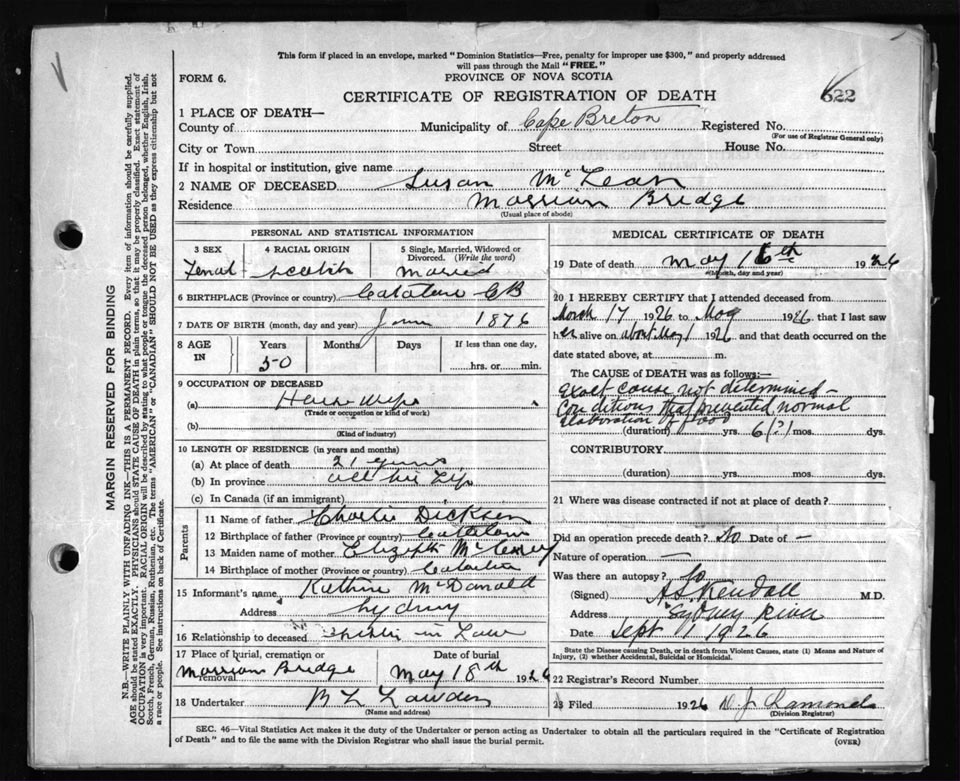 This form if placed in an envelope, marked "Dominion Statistics—Free, penalty for improper use $300," and properly addressed
will pass through the Mail "FREE."
FORM 6.
PROVINCE OF NOVA SCOTIA
CERTIFICATE OF REGISTRATION OF DEATH
622
1 PLACE OF DEATH—
County of Municipality of Cape Breton Registered No.
(For use of Registrar General only)
City or Town Street House No.
If in hospital or institution, give name
2 NAME OF DECEASED Susan McLean
Residence Marrian Bridge
(Usual place of abode)
PERSONAL AND STATISTICAL INFORMATION
3 SEX 4 RACIAL ORIGIN 5 Single, Married, Widowed or Divorced. (Write the word)
Femal Married
6 BIRTHPLACE (Province or country) Catalone CB
7 DATE OF BIRTH (month, day and year) 1876
8 AGE IN Years Months Days If less than one day,
50 hrs. or min.
9 OCCUPATION OF DECEASED
(a) House Wife
(Trade or occupation or kind of work)
(b)
(Kind of industry)
10 LENGTH OF RESIDENCE (in years and months)
(a) At place of death 21 years
(b) In province all her Life
(c) In Canada (if an immigrant)
Parents
11 Name of father Charlie Dickson
12 Birthplace of father (Province or country) Catalone
13 Maiden name of mother Elizabeth
14 Birthplace of mother (Province or country)
15 Informant's name Kathrine McDonald
Address Sydney
16 Relationship to deceased in Law
17 Place of burial, cremation or removal Date of burial
Marrian Bridge May 18th 1926
18 Undertaker
(Name and address)
MEDICAL CERTIFICATE OF DEATH
19 Date of death May 16th 1926
(Month, day and year)
20 I HEREBY CERTIFY that I attended deceased from
March 17 1926 to May 1926 that I last saw
her alive on about May 1 1926 and that death occurred on the
date stated above, at m.
The CAUSE of DEATH was as follows:—
exact cause not determined —
Conditions that prevented normal
elaboration of food
(duration) yrs. 6(?) mos. dys.
CONTRIBUTORY
(duration) yrs. mos. dys.
21 Where was disease contracted if not at place of death?
Did an operation precede death? No Date of —
Nature of operation —
Was there an autopsy? No
(Signed) A S Kendall M.D.
Address Sydney River
Date Sept 1 1926
State the Disease causing Death, or in death from Violent Causes, state (1) Means and Nature of
Injury, (2) whether Accidental, Suicidal or Homicidal.
22 Registrar's Record Number
23 Filed 1926
(Division Registrar)
SEC. 46—Vital Statistics Act makes it the duty of the Undertaker or person acting as Undertaker to obtain all the particulars required in the "Certificate of Registration
of Death" and to file the same with the Division Registrar who shall issue the burial permit. (OVER)
MARGIN RESERVED FOR BINDING
N.B.—WRITE PLAINLY WITH UNFADING INK—THIS IS A PERMANENT RECORD. Every item of information should be carefully supplied.
AGE should be stated EXACTLY. PHYSICIANS should STATE CAUSE OF DEATH in plain terms, so that it may be properly classified. Exact statement of
OCCUPATION is very important. RACIAL ORIGIN will be described by stating to what people or tongue the deceased person belonged, whether English, Irish,
Scotch, French, German, Russian, Ruthenian, etc. The terms "AMERICAN" or "CANADIAN" SHOULD NOT BE USED as they express citizenship but not
a race or people. See instructions on back of Certificate.